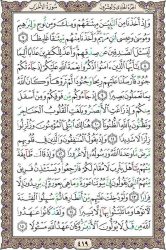 الجزء الحادي والعشرون سورة الأحزاب
وإذ أخذنا من النبيين ميثاقهم ومنك ومن نوح وإبراهيم
وموسى وعيسى ابن مريم وأخذنا منهم ميثاقا غليظا
ليسأل الصادقين عن صدقهم وأعد للكافرين عذابا أليما
يا أيها الذين آمنوا اذكروا نعمة الله عليكم إذ جاءتكم جنود
فأرسلنا عليهم ريحا وجنودا لم تروها وكان الله بما تعملون
بصيرا إذ جاءوكم من فوقكم ومن أسفل منكم
وإذ زاغت الأبصار وبلغت القلوب الحناجر
وتظنون بالله الظنونا هنالك ابتلي المؤمنون وزلزلوا
زلزالا شديدا وإذ يقول المنافقون والذين في قلوبهم
مرض ما وعدنا الله ورسوله إلا غرورا وإذ قالت طائفة
منهم يا أهل يثرب لا مقام لكم فارجعوا ويستأذن فريق
منهم النبي يقولون إن بيوتنا عورة وما هي بعورة إن يريدون
إلا فرارا ولو دخلت عليهم من أقطارها ثم سئلوا الفتنة
لآتوها وما تلبثوا بها إلا يسيرا ولقد كانوا عاهدوا الله
من قبل
٤١٩